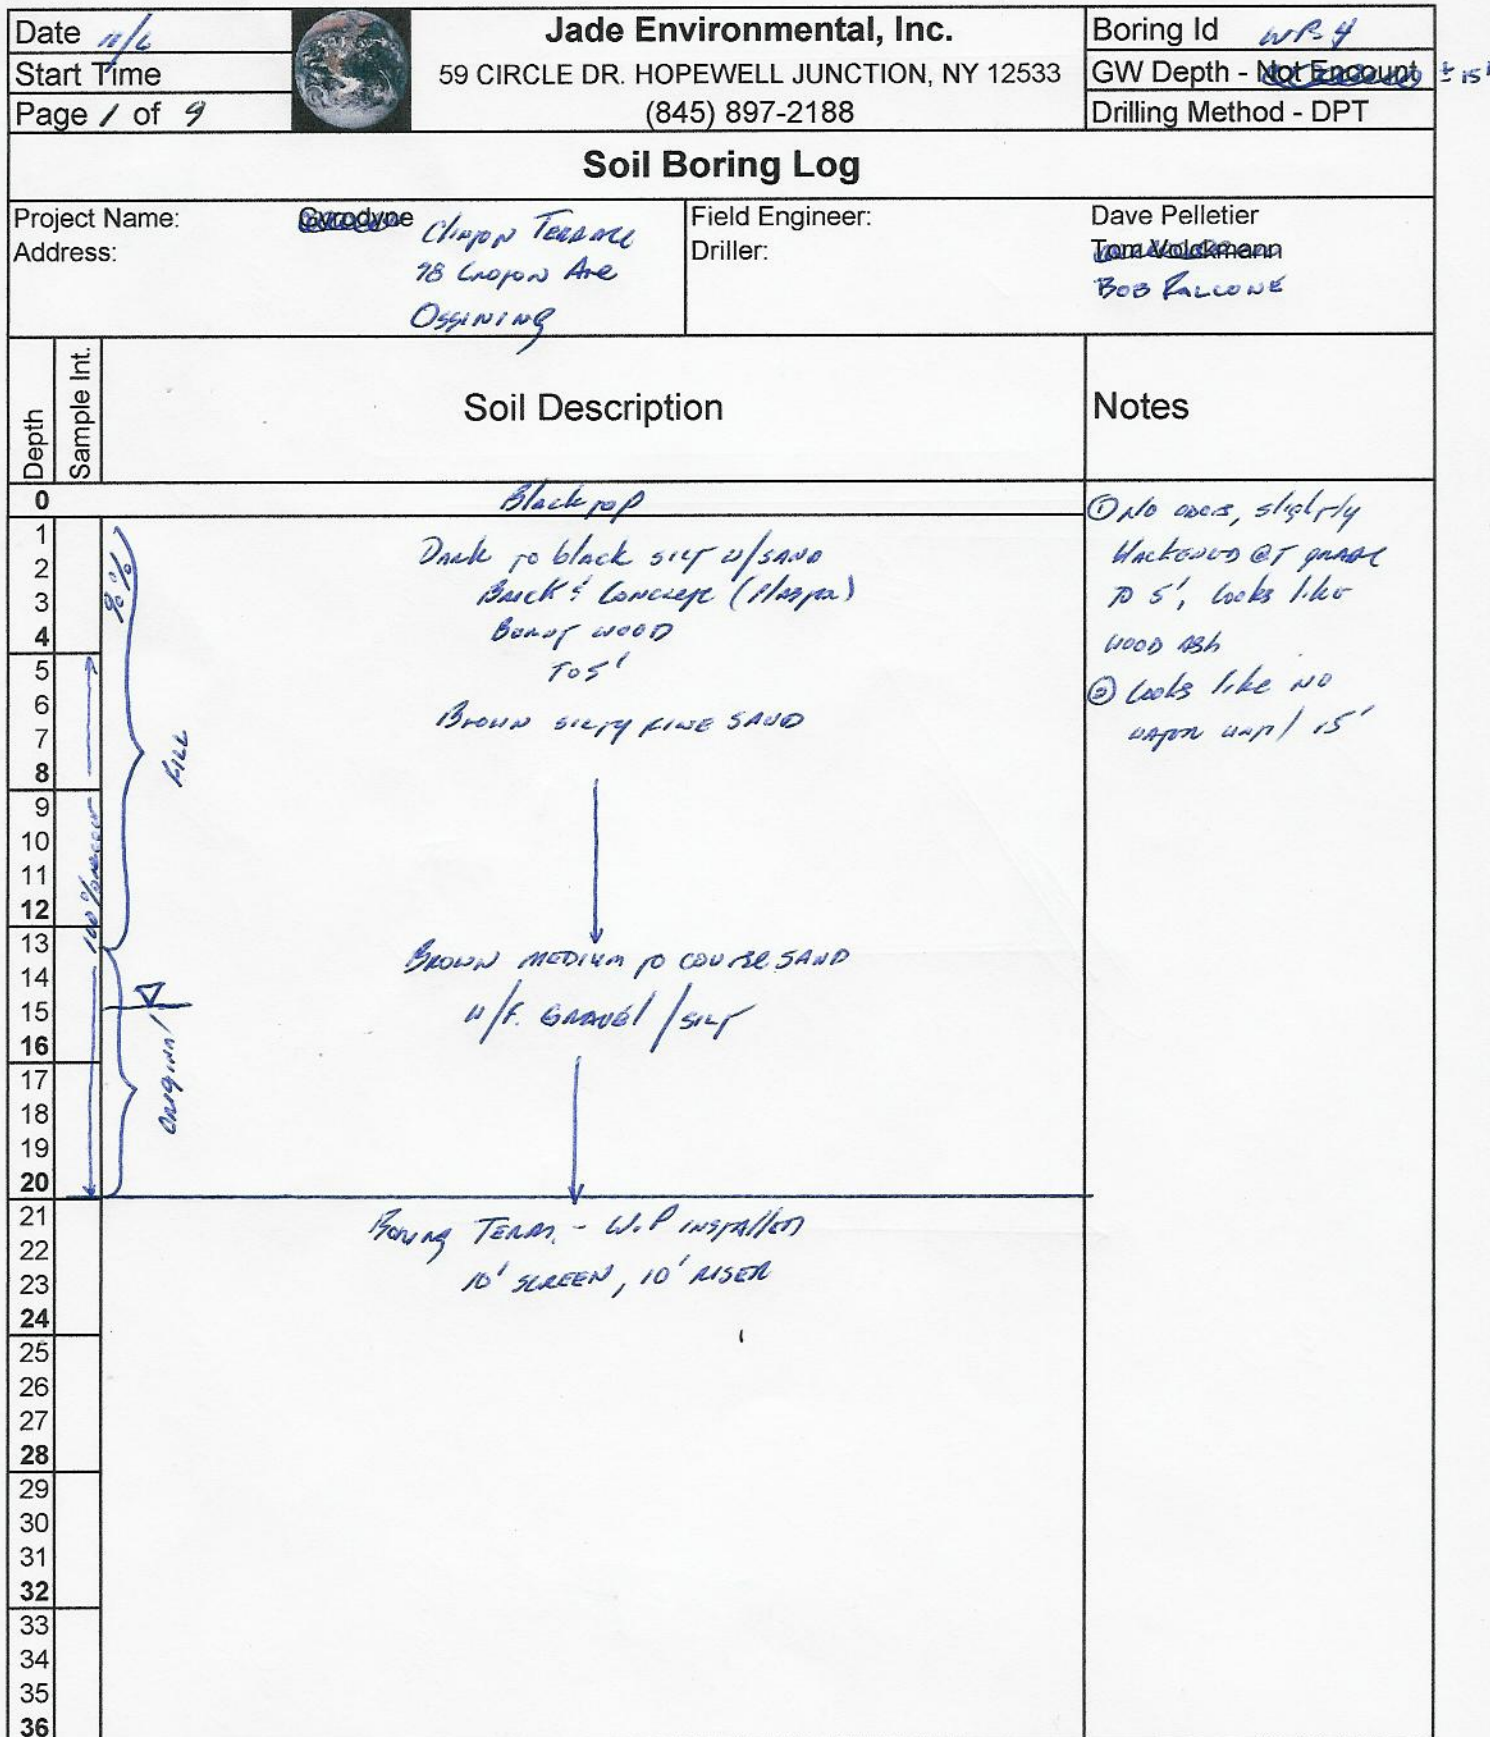 Date 11/6
Start Time
Page 1 of 9
Jade Environmental, Inc.
59 CIRCLE DR. HOPEWELL JUNCTION, NY 12533
(845) 897-2188
Boring Id WP 4
GW Depth - Not Encount ± 15'
Drilling Method - DPT
Soil Boring Log
Project Name: Gyrodyne Clinton Terrace
Address: 98 Croton Ave
Ossining
Field Engineer: Dave Pelletier
Driller: Tom Volckmann
BOB FALCONE
Depth
Sample Int.
Soil Description
Notes
0 Blacktop
1
2
3
4
5
6
7
8
9
10
11
12
13
14
15
16
17
18
19
20
21
22
23
24
25
26
27
28
29
30
31
32
33
34
35
36
100% 
FILL
ORIGINAL
DARK to black SILT w/SAND
BRICK & CONCRETE
BURNT WOOD
TO 5'
BROWN SILTY FINE SAND
BROWN MEDIUM TO COURSE SAND
w/F. GRAVEL / SILT
Boring TERM. - W.P INSTALLED
10' SCREEN, 10' RISER
① NO ODORS, slightly
blackened @T GRADE
TO 5', looks like
WOOD ASh
② looks like NO
WATER until 15'